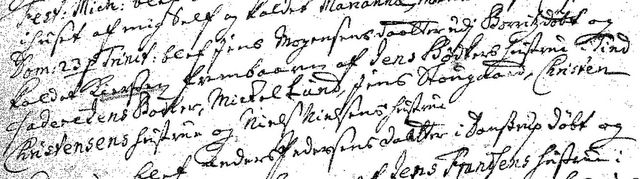 Fest: Mich: blef
i huset af mig self og kaldet Marianna
Dom: 23 p Trinit: blef Jens Mogensens daatter udj Borrits døbt og
kaldet Kiersten frembaaren af Jens Bødkers hustrue
faddere Jens Bødker, Mickel Lund, Jens Stougaard, Christen
Christensens hustrue og Niels Nielsens hustrue
blef Anders Pedersens daatter i Danstrup døbt og
af Jens Frantsens hustrue i